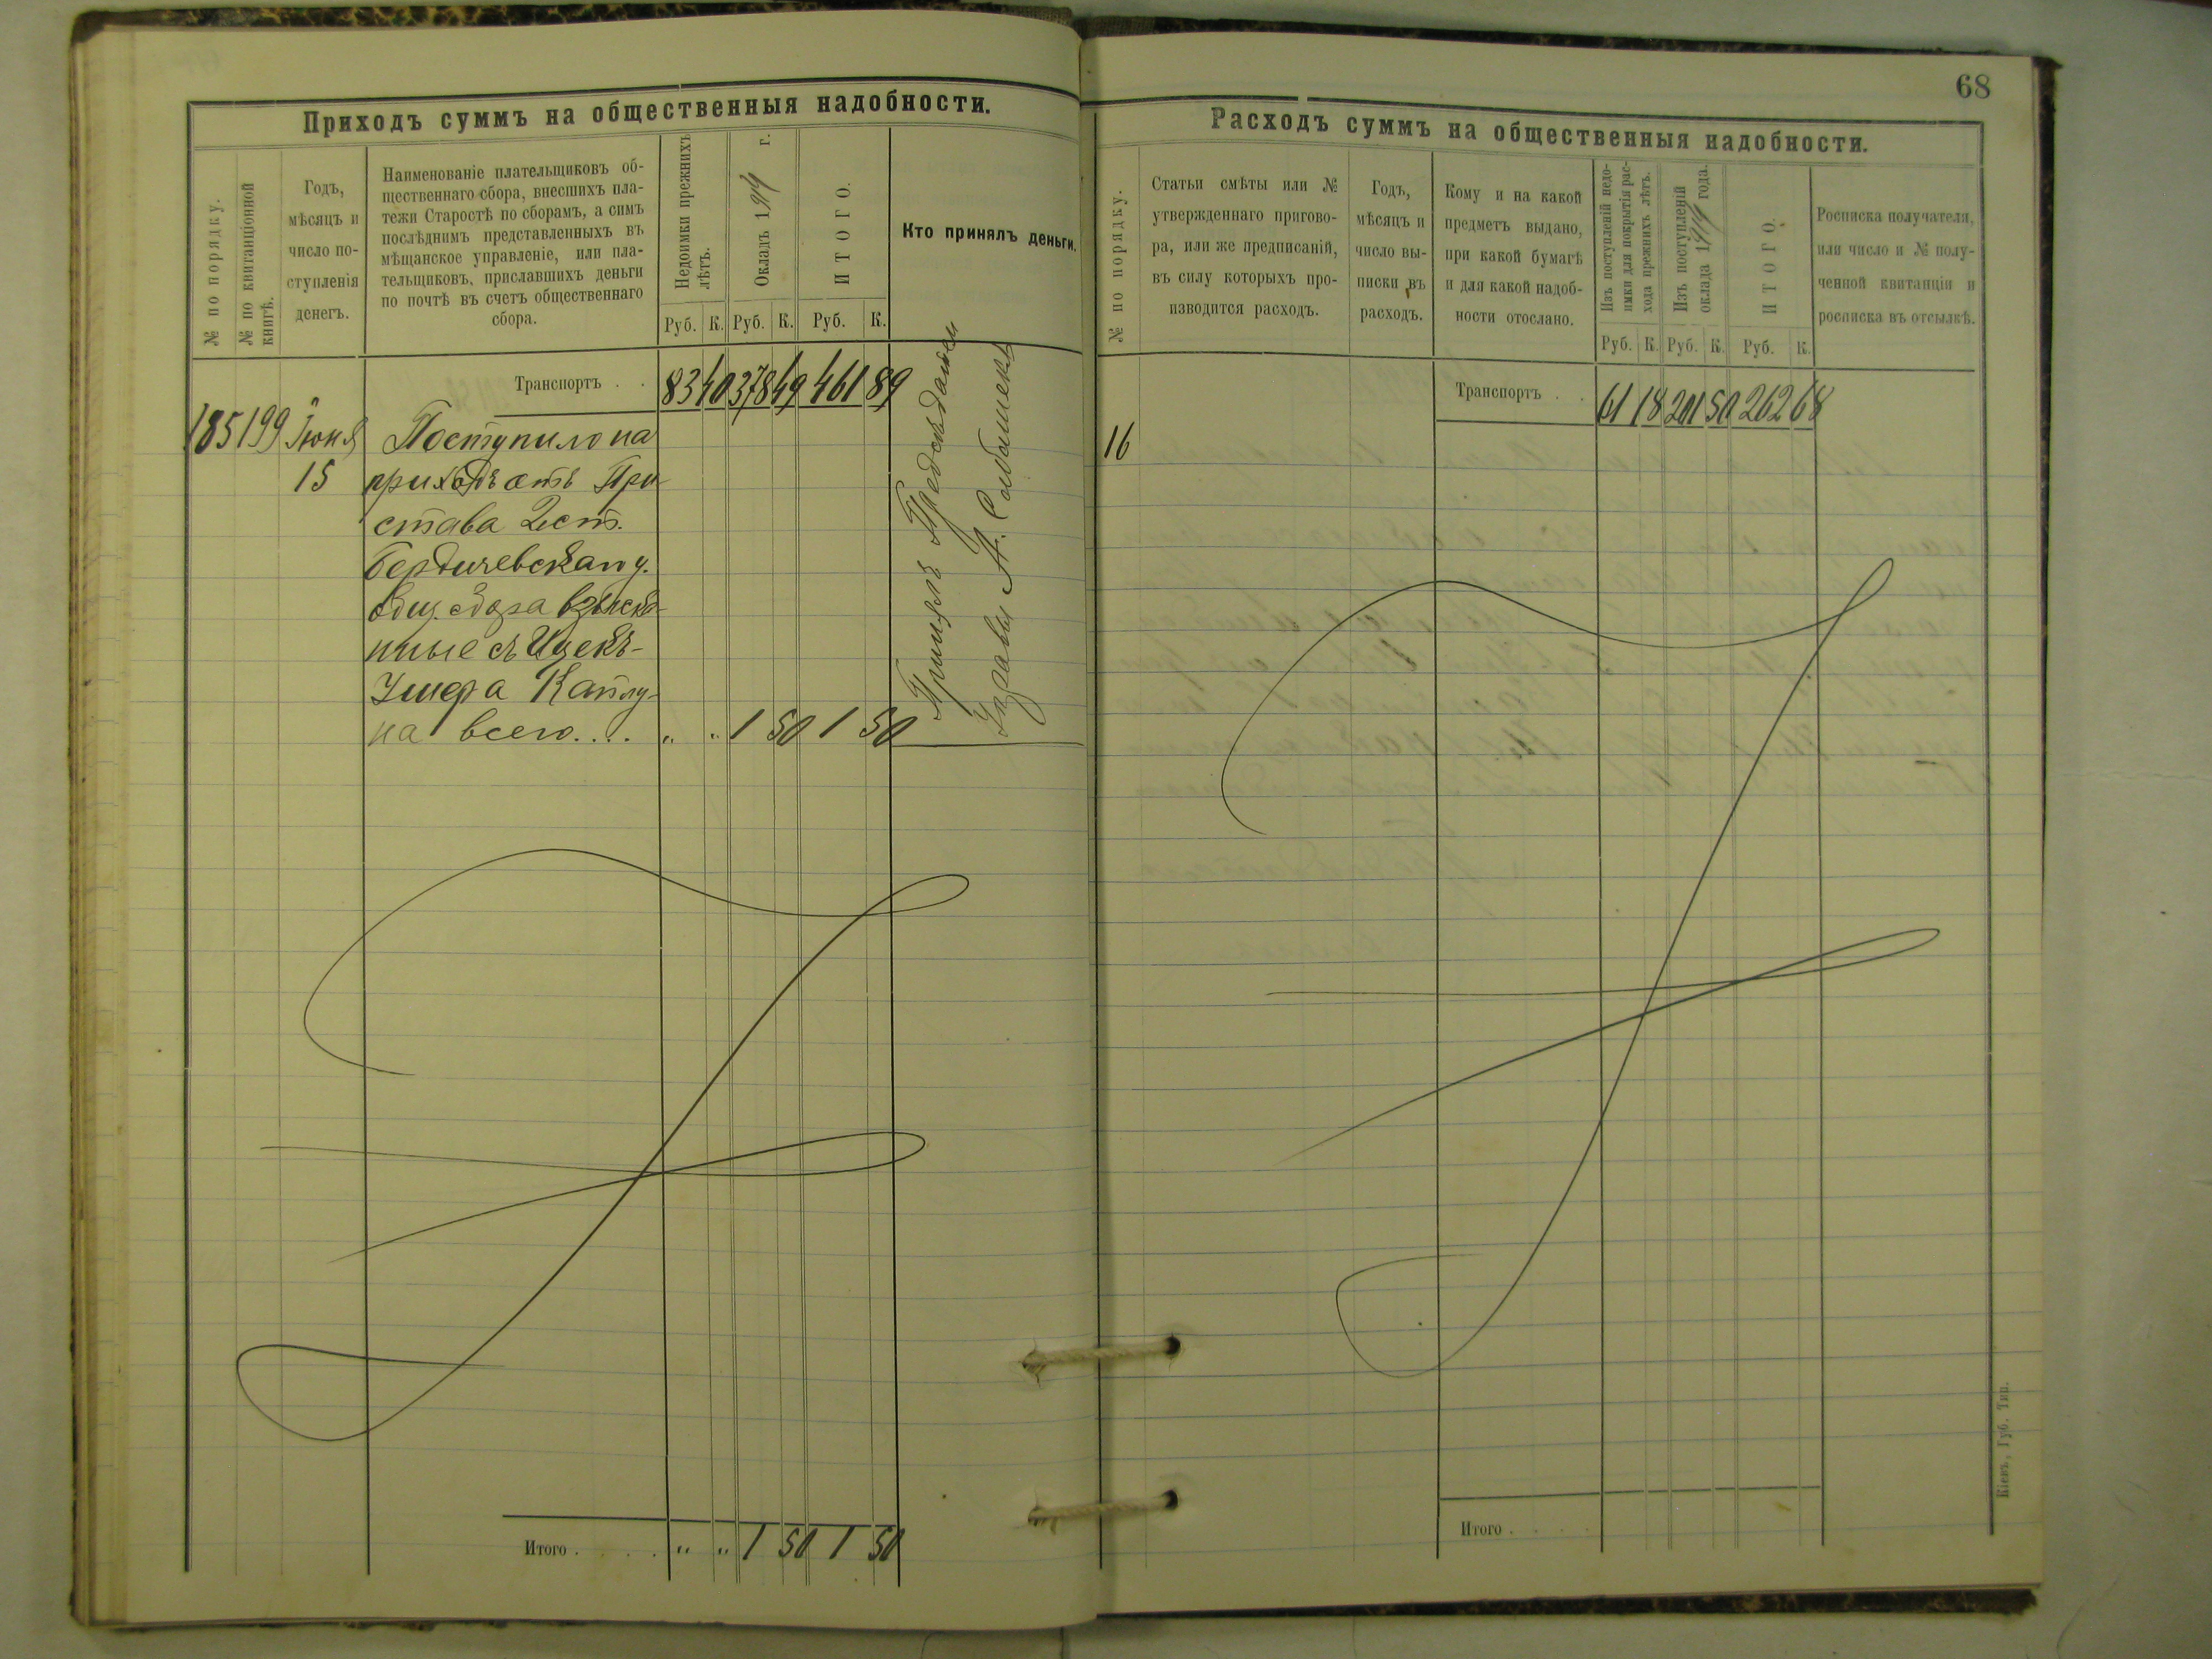 Приходъ суммъ на общественныя надобности.
№ по порядку.
№ по квитанціонной
книгѣ.
Годъ,
мѣсяцъ и
число по-
ступленія
денегъ.
Наименованіе плательщиковъ об-
щественнаго сбора, внесшихъ пла-
тежи Старостѣ по сборамъ, а симъ
послѣднимъ представленныхъ въ
мѣщанское управленіе, или пла-
тельщиковъ, приславшихъ деньги
по почтѣ въ счетъ общественнаго
сбора.
Недоимки прежнихъ
лѣтъ.
Окладъ 1914 г.
ИТОГО.
Кто принялъ деньги.
Руб. К. Руб. К. Руб. К.
Транспортъ . . 83 40 378 49 461 89
185 199 Іюня Поступило на
15 приходъ отъ При
става 2 ст.
Бердичевскаго у.
общ. сбора взыскан-
ные съ Ицекъ-
Умера Каплу-
на всего.... " " 1 50 1 50
Принялъ Председатель
Управы А.
Итого . . . . . " " 1 50 1 50
68
Расходъ суммъ на общественныя надобности.
№ по порядку.
Статьи смѣты или №
утвержденнаго пригово-
ра, или же предписаній,
въ силу которыхъ про-
изводится расходъ.
Годъ,
мѣсяцъ и
число вы-
писки въ
расходъ.
Кому и на какой
предметъ выдано,
при какой бумагѣ
и для какой надоб-
ности отослано.
Изъ поступленій недо-
имки для покрытія рас-
хода прежнихъ лѣтъ.
Изъ поступленій
оклада 1914 года.
ИТОГО.
Росписка получателя,
или число и № полу-
ченной квитанціи и
росписка въ отсылкѣ.
Руб. К. Руб. К. Руб. К.
Транспортъ . . 61 18 201 50 262 68
16
Итого . . . .
Кіевъ, Губ. Тип.